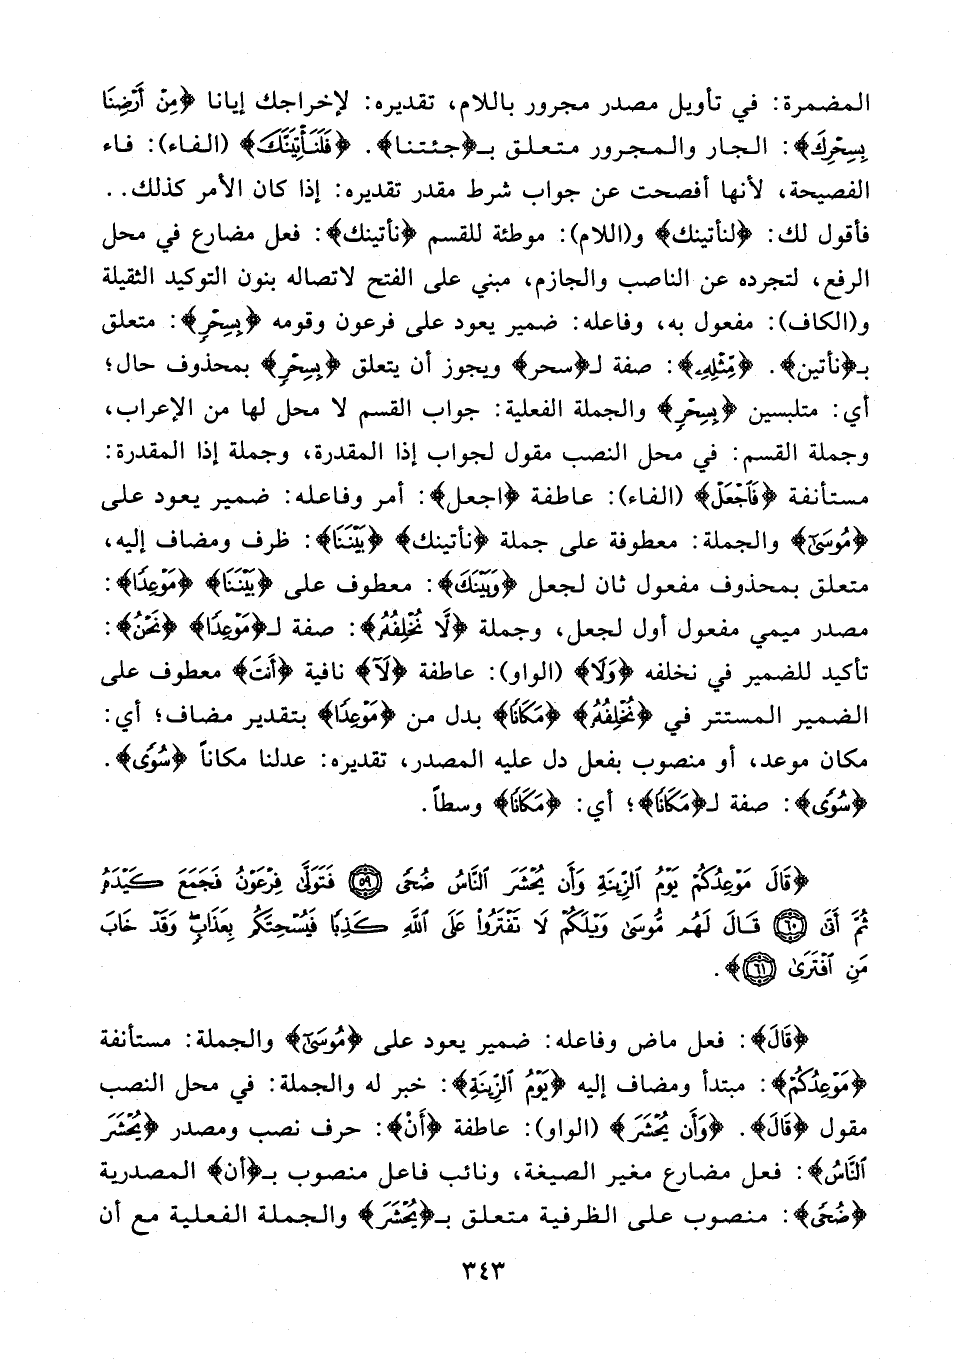 المضمرة: في تأويل مصدر مجرور باللام، تقديره: لإخراجك إيانا ﴿مِنْ أَرْضِنَا
بِسِحْرِكَ﴾: الجار والمجرور متعلق بـ﴿جئتنا﴾. ﴿فَلَنَأْتِيَنَّكَ﴾ (الفاء): فاء
الفصيحة، لأنها أفصحت عن جواب شرط مقدر تقديره: إذا كان الأمر كذلك..
فأقول لك: ﴿لنأتينك﴾ و(اللام): موطئة للقسم ﴿نأتينك﴾: فعل مضارع في محل
الرفع، لتجرده عن الناصب والجازم، مبني على الفتح لاتصاله بنون التوكيد الثقيلة
و(الكاف): مفعول به، وفاعله: ضمير يعود على فرعون وقومه ﴿بِسِحْرٍ﴾: متعلق
بـ﴿نأتين﴾. ﴿مِّثْلِهِ﴾: صفة لـ﴿سحر﴾ ويجوز أن يتعلق ﴿بِسِحْرٍ﴾ بمحذوف حال؛
أي: متلبسين ﴿بِسِحْرٍ﴾ والجملة الفعلية: جواب القسم لا محل لها من الإعراب،
وجملة القسم: في محل النصب مقول لجواب إذا المقدرة، وجملة إذا المقدرة:
مستأنفة ﴿فَاجْعَلْ﴾ (الفاء): عاطفة ﴿اجعل﴾: أمر وفاعله: ضمير يعود على
﴿مُوسَىٰ﴾ والجملة: معطوفة على جملة ﴿نأتينك﴾ ﴿بَيْنَنَا﴾: ظرف ومضاف إليه،
متعلق بمحذوف مفعول ثان لجعل ﴿وَبَيْنَكَ﴾: معطوف على ﴿بَيْنَنَا﴾ ﴿مَوْعِدًا﴾:
مصدر ميمي مفعول أول لجعل، وجملة ﴿لَّا نُخْلِفُهُ﴾: صفة لـ﴿مَوْعِدًا﴾ ﴿نَحْنُ﴾:
تأكيد للضمير في نخلفه ﴿وَلَا﴾ (الواو): عاطفة ﴿لَآ﴾ نافية ﴿أَنتَ﴾ معطوف على
الضمير المستتر في ﴿نُخْلِفُهُ﴾ ﴿مَكَانًا﴾ بدل من ﴿مَوْعِدًا﴾ بتقدير مضاف؛ أي:
مكان موعد، أو منصوب بفعل دل عليه المصدر، تقديره: عدلنا مكاناً ﴿سُوًى﴾.
﴿سُوًى﴾: صفة لـ﴿مَكَانًا﴾؛ أي: ﴿مَكَانًا﴾ وسطاً.
﴿قَالَ مَوْعِدُكُمْ يَوْمُ ٱلزِّينَةِ وَأَن يُحْشَرَ ٱلنَّاسُ ضُحًى ٥٩ فَتَوَلَّىٰ فِرْعَوْنُ فَجَمَعَ كَيْدَهُ
ثُمَّ أَتَىٰ ٦٠ قَالَ لَهُم مُّوسَىٰ وَيْلَكُمْ لَا تَفْتَرُوا۟ عَلَى ٱللَّهِ كَذِبًا فَيُسْحِتَكُم بِعَذَابٍ وَقَدْ خَابَ
مَنِ ٱفْتَرَىٰ ٦١﴾.
﴿قَالَ﴾: فعل ماض وفاعله: ضمير يعود على ﴿مُوسَىٰ﴾ والجملة: مستأنفة
﴿مَوْعِدُكُمْ﴾: مبتدأ ومضاف إليه ﴿يَوْمُ ٱلزِّينَةِ﴾: خبر له والجملة: في محل النصب
مقول ﴿قَالَ﴾. ﴿وَأَن يُحْشَرَ﴾ (الواو): عاطفة ﴿أَنْ﴾: حرف نصب ومصدر ﴿يُحْشَرَ
ٱلنَّاسُ﴾: فعل مضارع مغير الصيغة، ونائب فاعل منصوب بـ﴿أن﴾ المصدرية
﴿ضُحًى﴾: منصوب على الظرفية متعلق بـ﴿يُحْشَرَ﴾ والجملة الفعلية مع أن
٣٤٣